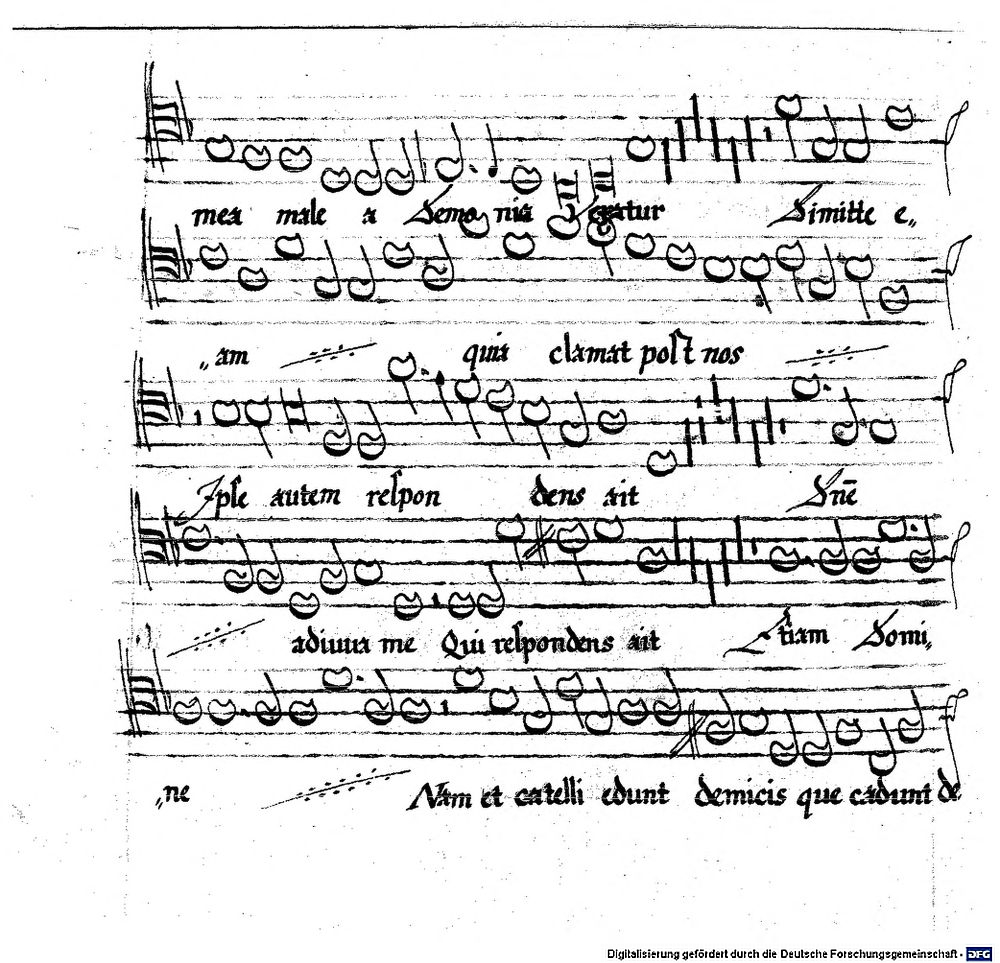 mea male a Demonio vexatur Dimitte e„
„am quia clamat post nos
Ipse autem respondens ait Dñe
adiuva me Qui respondens ait Etiam Domi„
„ne Nam et catelli edunt demicis que cadunt de
Digitalisierung gefördert durch die Deutsche Forschungsgemeinschaft - DFG